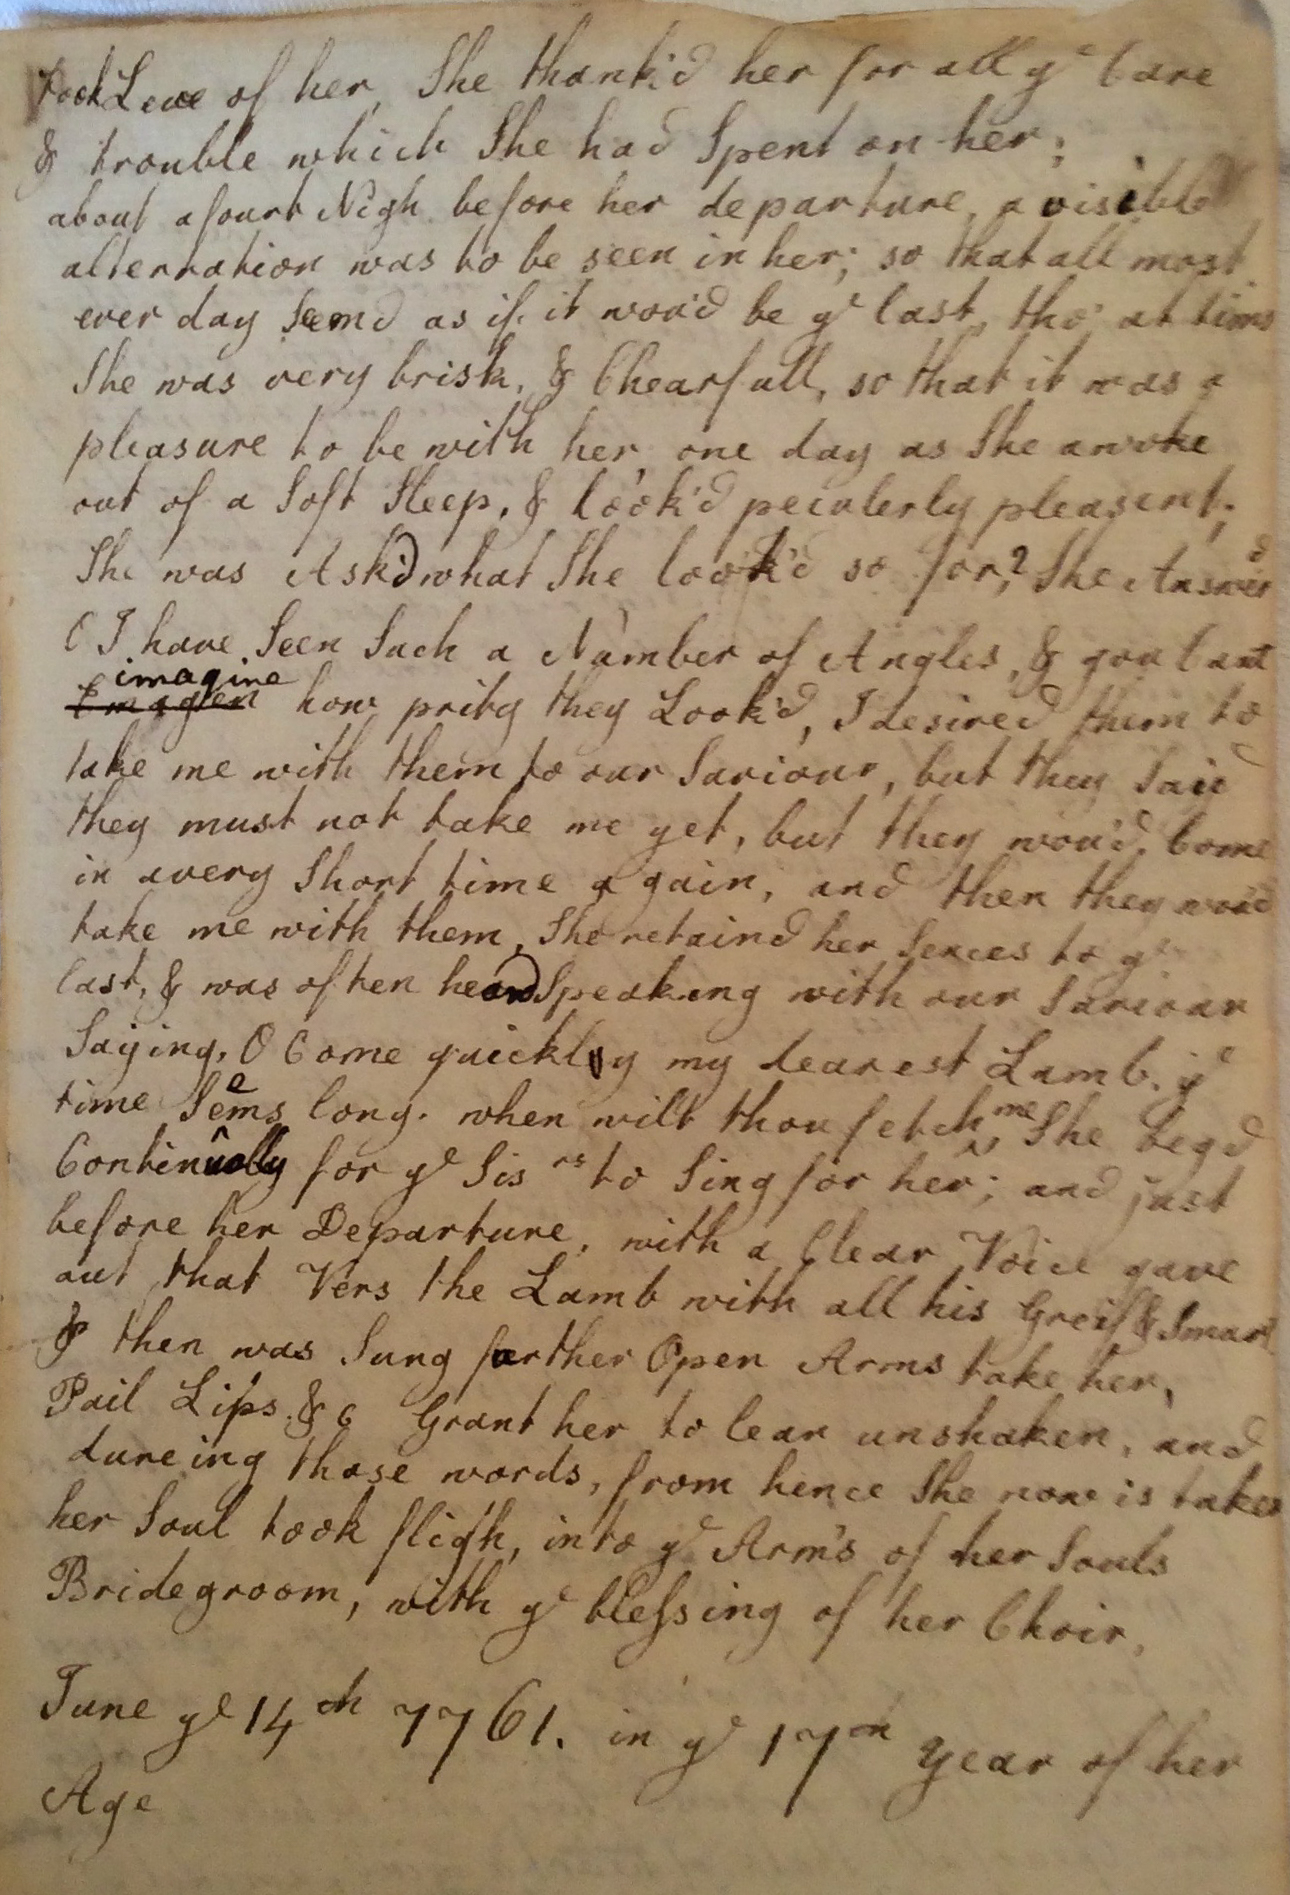 took Leve of her, She thank'd her for all yᵉ Care
& trouble which She had Spent on her;
about afourt Nigh before her departure, a visible
alterration was to be seen in her; so that all most
ever day Seemd as if it wou'd be yᵉ last, tho' at tims
She was very brisk, & Chearfull, so that it was a
pleasure to be with her, one day as She awoke
out of a Soft Sleep, & look'd peculerly pleasent;
She was Ask'd what She look'd so for? She Answerᵈ
O I have Seen Such a Number of Angles, & you Cant
imagine
Emagien how prity they Look'd, I desired them to
take me with them to our Saviour, but they Said
they must not take me yet, but they wou'd Come
in avery Short time again, and then they wou'd
take me with them, She retaind her Sences to yᵉ
last, & was often heard Speaking with our Saviour
Saying, O Come quickly my dearest Lamb. yᵉ
time Seems long. when wilt thou fetch me, She beg'd
Continually for yᵉ Sisʳˢ to Sing for her; and just
before her Departure, with a Clear Voice gave
out that Vers the Lamb with all his Greif & Smart
& then was Sung farther Open Arms take her,
Pail Lips &c Grant her to lean unshaken, and
dureing those words, from hence She now is taken
her Soul took fligh, into yᵉ Arm's of her Souls
Bridegroom, with yᵉ blessing of her Choir,
June yᵉ 14th 1761. in yᵉ 17th year of her
Age